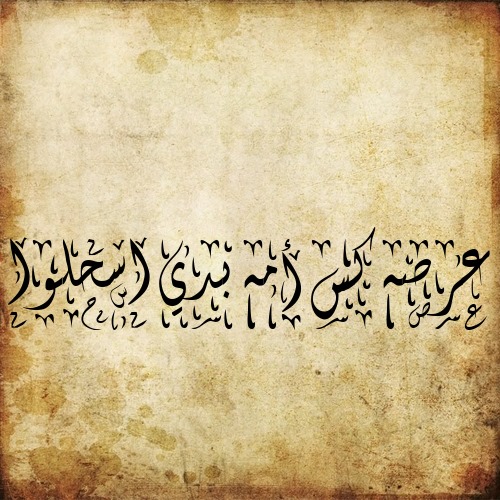 عرضه كس أمه بدي اسحلوا